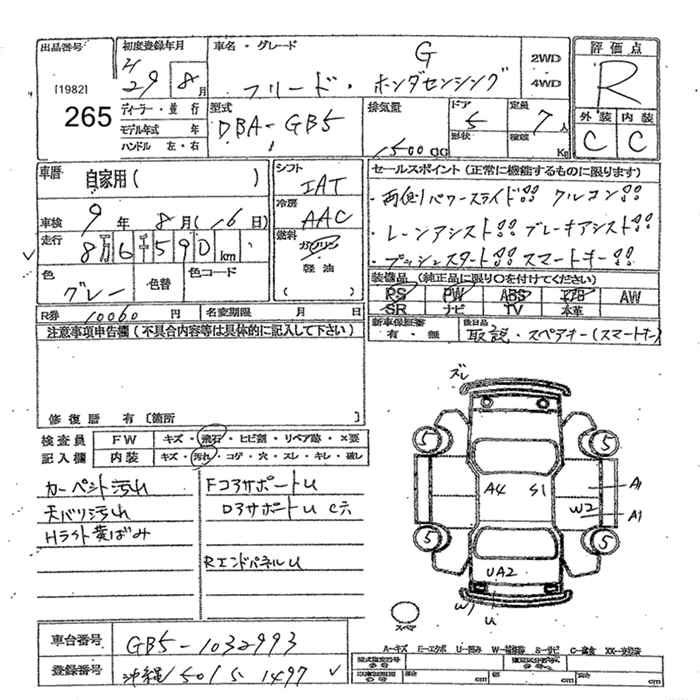 出品番号
[1982]
265
初度登録年月
H 29 8 月
ディーラー・並行
モデル年式 年
ハンドル 左・右
車名・グレード
G
フリード・ホンダセンシング
2WD
4WD
型式
DBA-GB5
排気量
1500 CC
ドア
5
形状
定員
7人
積載
Kg
評価点
R
外装 内装
C C
車歴
自家用( )
車検 9年 8月(16日)
走行
8万6千590km
色
グレー
色替
色コード
シフト
IAT
冷房
AAC
燃料
ガソリン
軽油
( )
セールスポイント(正常に機能するものに限ります)
・両側パワースライド!! クルコン!!
・レーンアシスト!! ブレーキアシスト!!
・プッシュスタート!! スマートキー!!
装備品(純正品に限り○を付けてください)
PS PW ABS エアB AW
SR ナビ TV 本革
新車保証書
有・無
後日品
取説・スペアキー(スマートキー)
R券 10060 円
名変期限 月 日
注意事項申告欄(不具合内容等は具体的に記入して下さい)
修復歴 有 [箇所 ]
検査員
記入欄
FW キズ・飛石・ヒビ割・リペア跡・×要
内装 キズ・汚れ・コゲ・穴・スレ・キレ・破レ
カーペット汚れ
天バリ汚れ
Hライト黄ばみ
FコアサポートU
DアサポートU C穴
RエンドパネルU
ズレ
5 5
A4 S1 A1
W2 A1
5 5
UA2
W1 U
スペア
A-キズ E-エクボ U-凹み W-補修跡 S-サビ C-腐食 XX-交換済
車台番号 GB5-1032993
登録番号 沖縄 501 に 1497
型式指定番号
類別区分番号
長 cm 幅 cm 高 cm